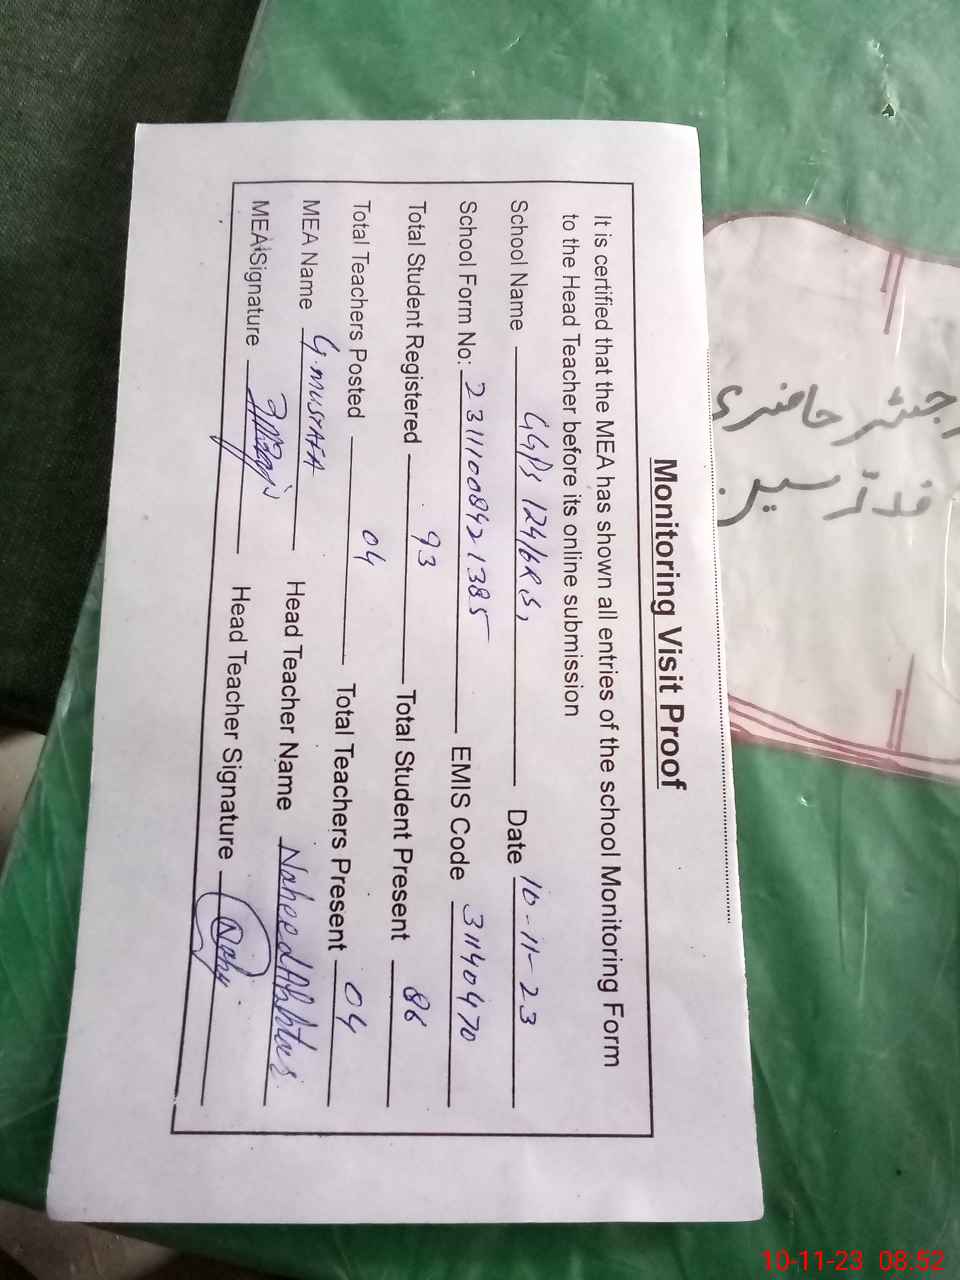 Monitoring Visit Proof
It is certified that the MEA has shown all entries of the school Monitoring Form
to the Head Teacher before its online submission
School Name GGPS 124/6R B, Date 10-11-23
School Form No: 23111008421385 EMIS Code 31140470
Total Student Registered 93 Total Student Present 86
Total Teachers Posted 04 Total Teachers Present 04
MEA Name G.MUSTAFA Head Teacher Name Naheed Akhtar
MEA Signature Head Teacher Signature
رجسٹر حاضری
10-11-23 08:52